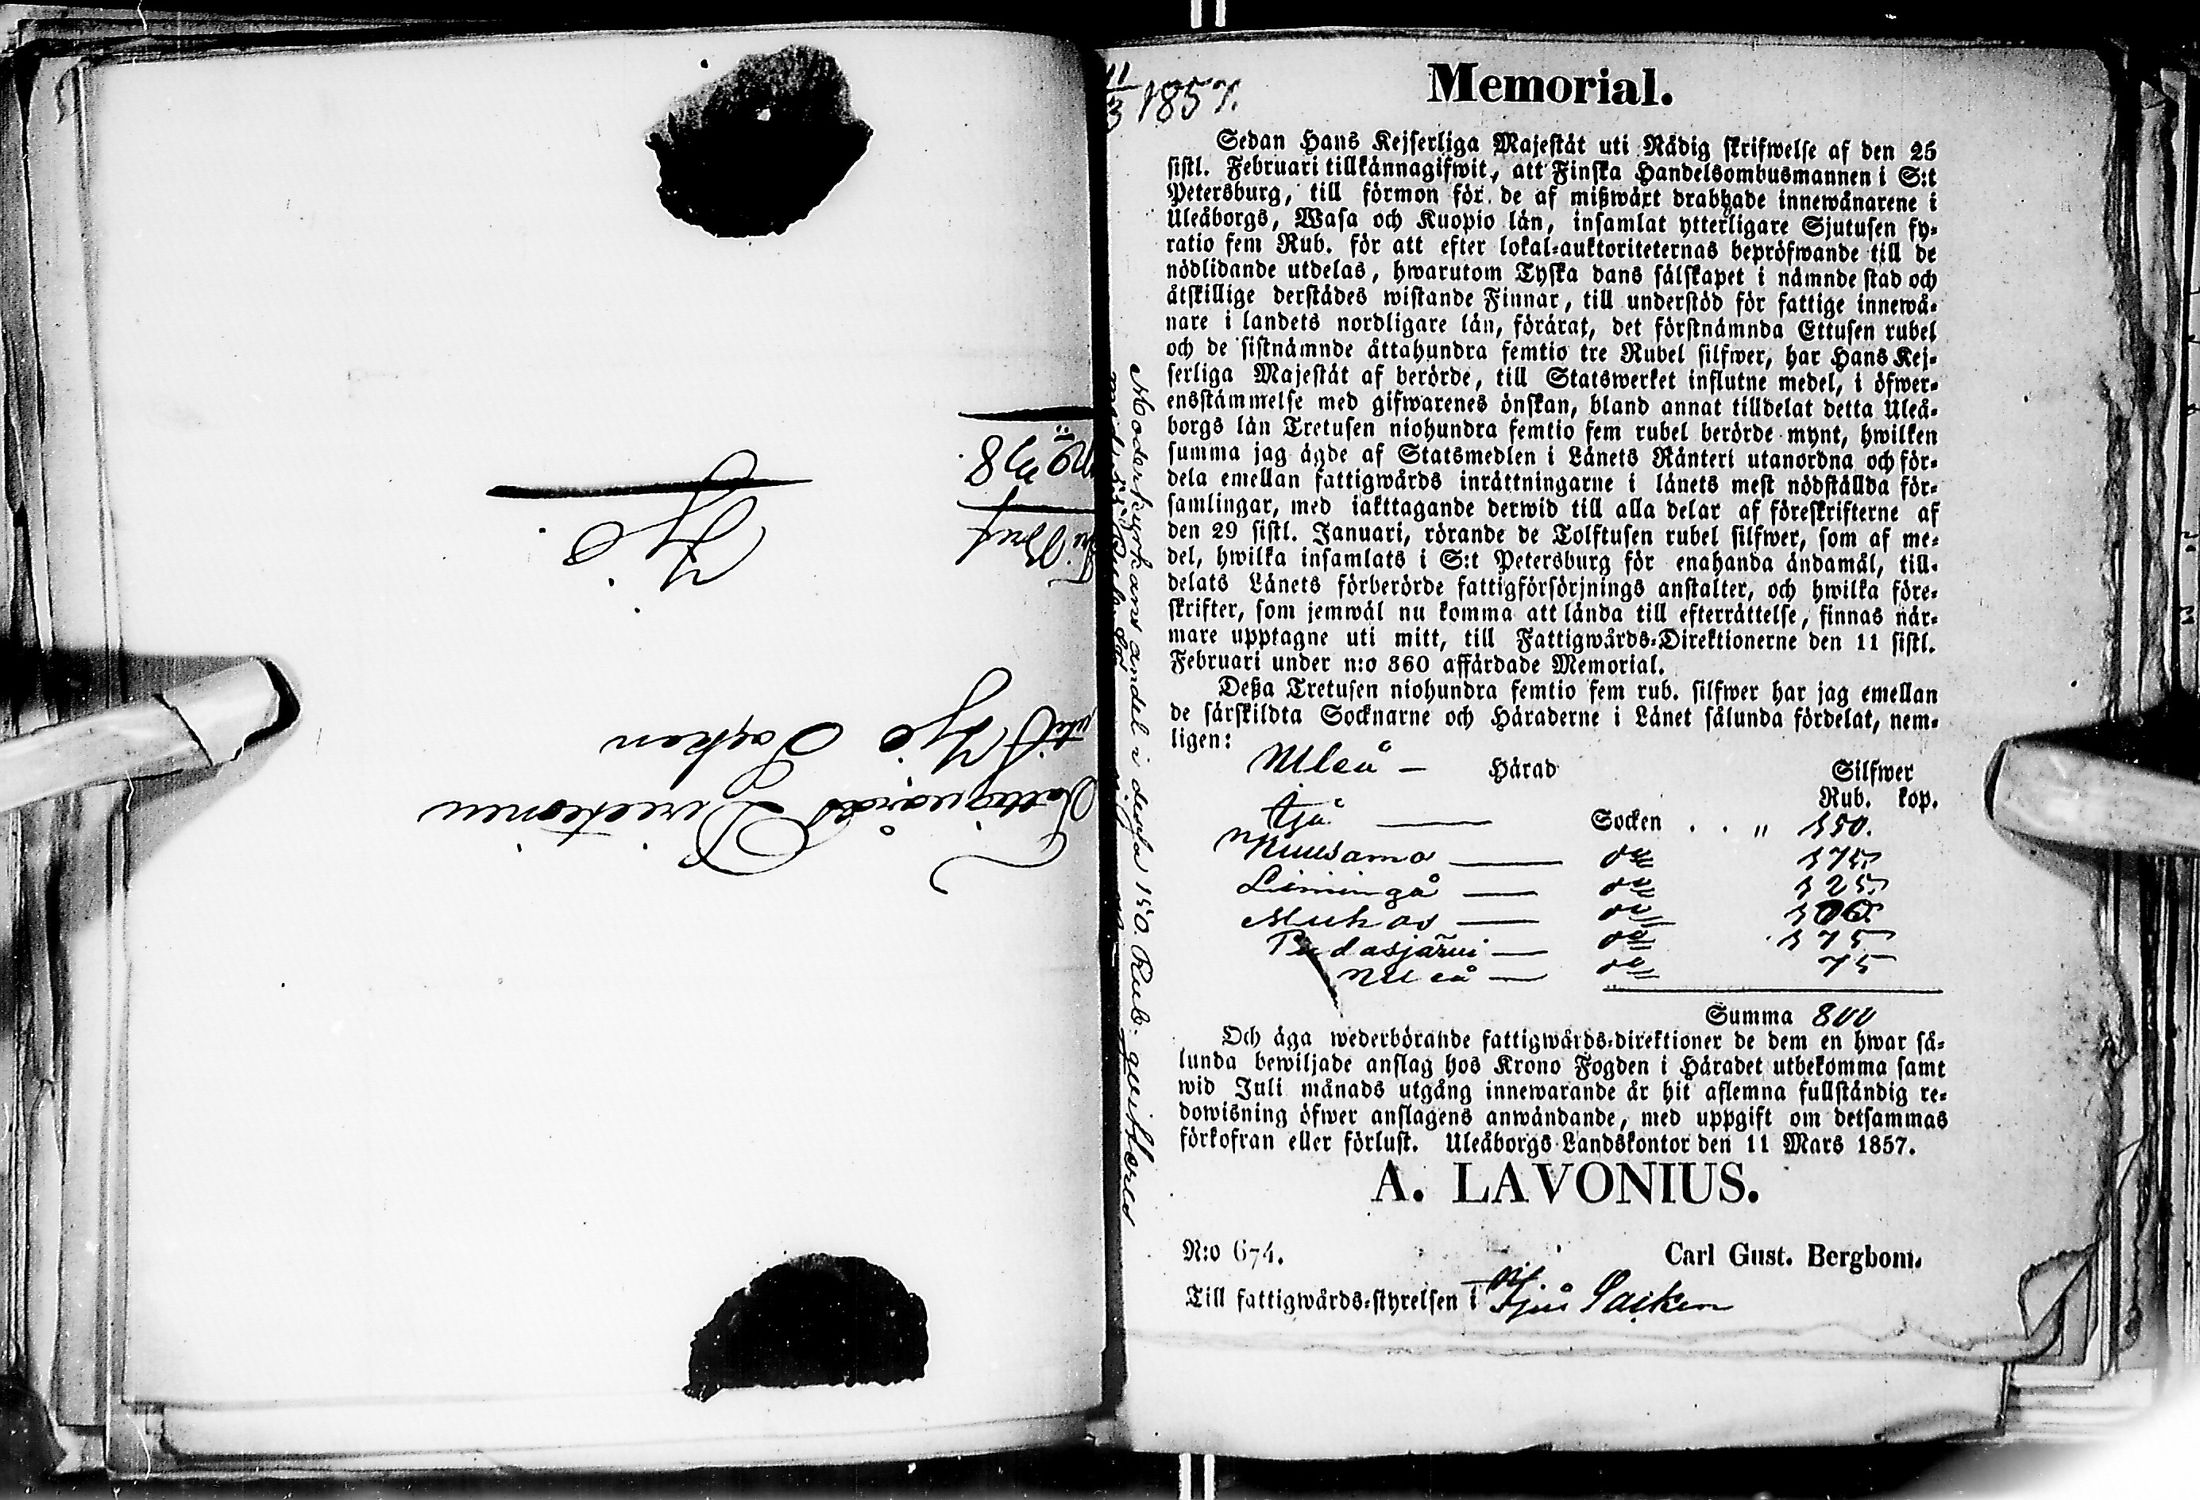 Fattigwårds Directionen
uti Ijo Socken
Ijo.
11/3 1857.
Memorial.
Sedan Hans Kejserliga Majestät uti Nådig skrifwelse af den 25
sistl. Februari tillkännagifwit, att Finska Handelsombusmannen i S:t
Petersburg, till förmon för de af mißwäxt drabbade innewånarene i
Uleåborgs, Wasa och Kuopio län, insamlat ytterligare Sjutusen fy-
ratio fem Rub. för att efter lokal-auktoriteternas bepröfwande till de
nödlidande utdelas, hwarutom Tyska dans sälskapet i nämnde stad och
åtskillige derstädes wistande Finnar, till understöd för fattige innewå-
nare i landets nordligare län, förärat, det förstnämnda Ettusen rubel
och de sistnämnde åttahundra femtio tre Rubel silfwer, har Hans Kej-
serliga Majestät af berörde, till Statswerket influtne medel, i öfwer-
ensstämmelse med gifwarenes önskan, bland annat tilldelat detta Uleå-
borgs län Tretusen niohundra femtio fem rubel berörde mynt, hwilken
summa jag ägde af Statsmedlen i Länets Ränteri utanordna och för-
dela emellan fattigwårds inrättningarne i länets mest nödställda för-
samlingar, med iakttagande derwid till alla delar af föreskrifterne af
den 29 sistl. Januari, rörande de Tolftusen rubel silfwer, som af me-
del, hwilka insamlats i S:t Petersburg för enahanda ändamål, till-
delats Länets förberörde fattigförsörjnings anstalter, och hwilka före-
skrifter, som jemwäl nu komma att lända till efterrättelse, finnas när-
mare upptagne uti mitt, till Fattigwårds-Direktionerne den 11 sistl.
Februari under n:o 360 affärdade Memorial.
Deßa Tretusen niohundra femtio fem rub. silfwer har jag emellan
de särskildta Socknarne och Häraderne i Länet sålunda fördelat, nem-
ligen:
Uleå — Härad Silfwer
Rub. kop.
Ijå — Socken . . " 150.
Kuusamo — do 175.
Limingå — do 125.
Muhos — do 100.
Pudasjärvi — do 175
Uleå — do 75
Summa 800
Och äga wederbörande fattigwårds-direktioner de dem en hwar så-
lunda bewiljade anslag hos Krono Fogden i Häradet utbekomma samt
wid Juli månads utgång innewarande år hit aflemna fullständig re-
dowisning öfwer anslagens anwändande, med uppgift om detsammas
förkofran eller förlust. Uleåborgs Landskontor den 11 Mars 1857.
A. LAVONIUS.
N:o 674. Carl Gust. Bergbom.
Till fattigwårds-styrelsen i Ijå Socken
Moderkyrkans andel i dessa 150. Rub. quitteras